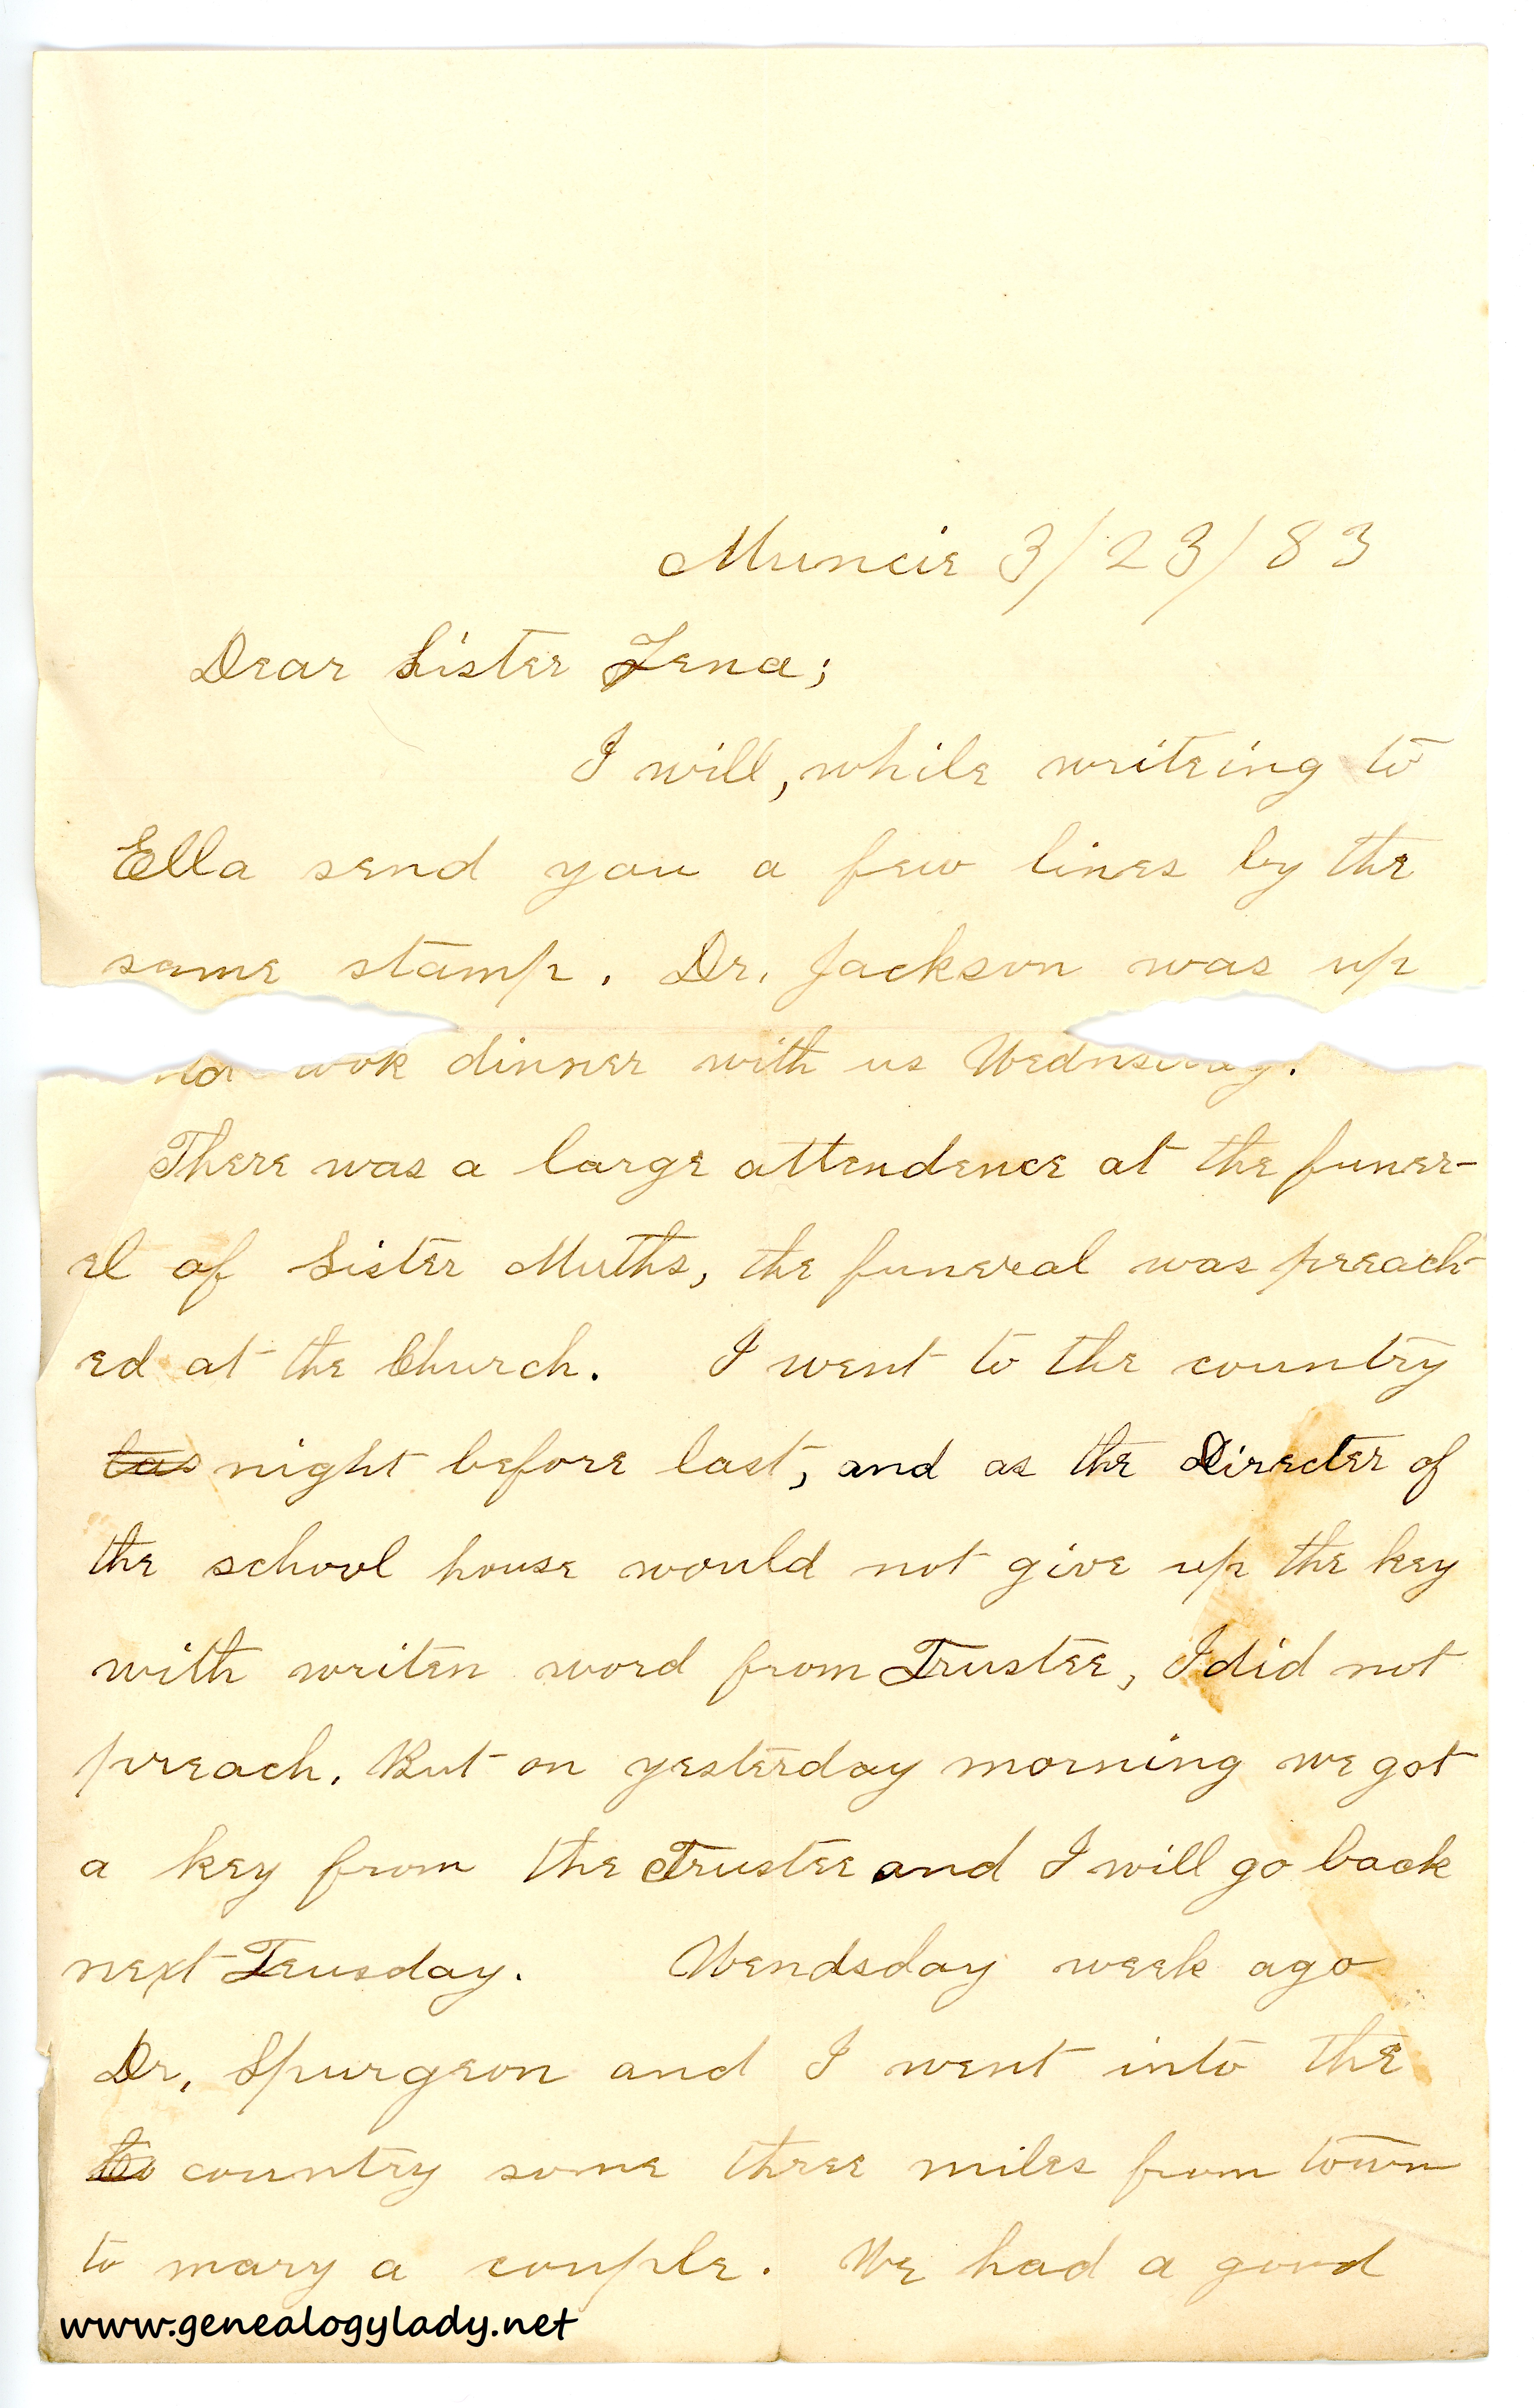 Muncie 3/23/83
Dear Sister Lena;
I will, while writeing to
Ella send you a few lines by the
same stamp. Dr. Jackson was up
dinner with us Wednsday.
There was a large attendence at the funer-
el of Sister Muths, the funeral was preach-
ed at the Church. I went to the country
las night before last, and as the Directer of
the school house would not give up the key
with writen word from Trustee, I did not
preach. But on yesterday morning we got
a key from the Trustee and I will go back
next Teusday. Wendsday week ago
Dr. Spurgeon and I went into the
to country some three miles from town
to mary a couple. We had a good
www.genealogylady.net